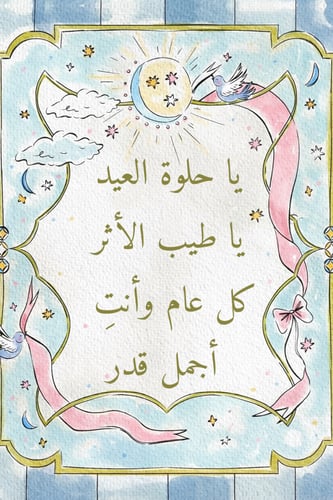 يا حلوة العيد
يا طيب الأثر
كل عام وأنتِ
أجمل قدر